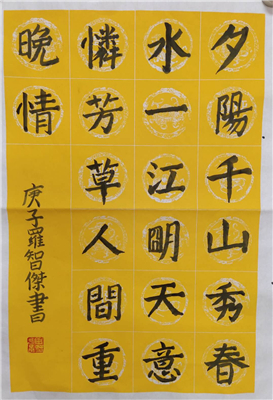 夕陽千山秀春
水一江明天意
憐芳草人間重
晚情
庚子羅智傑書